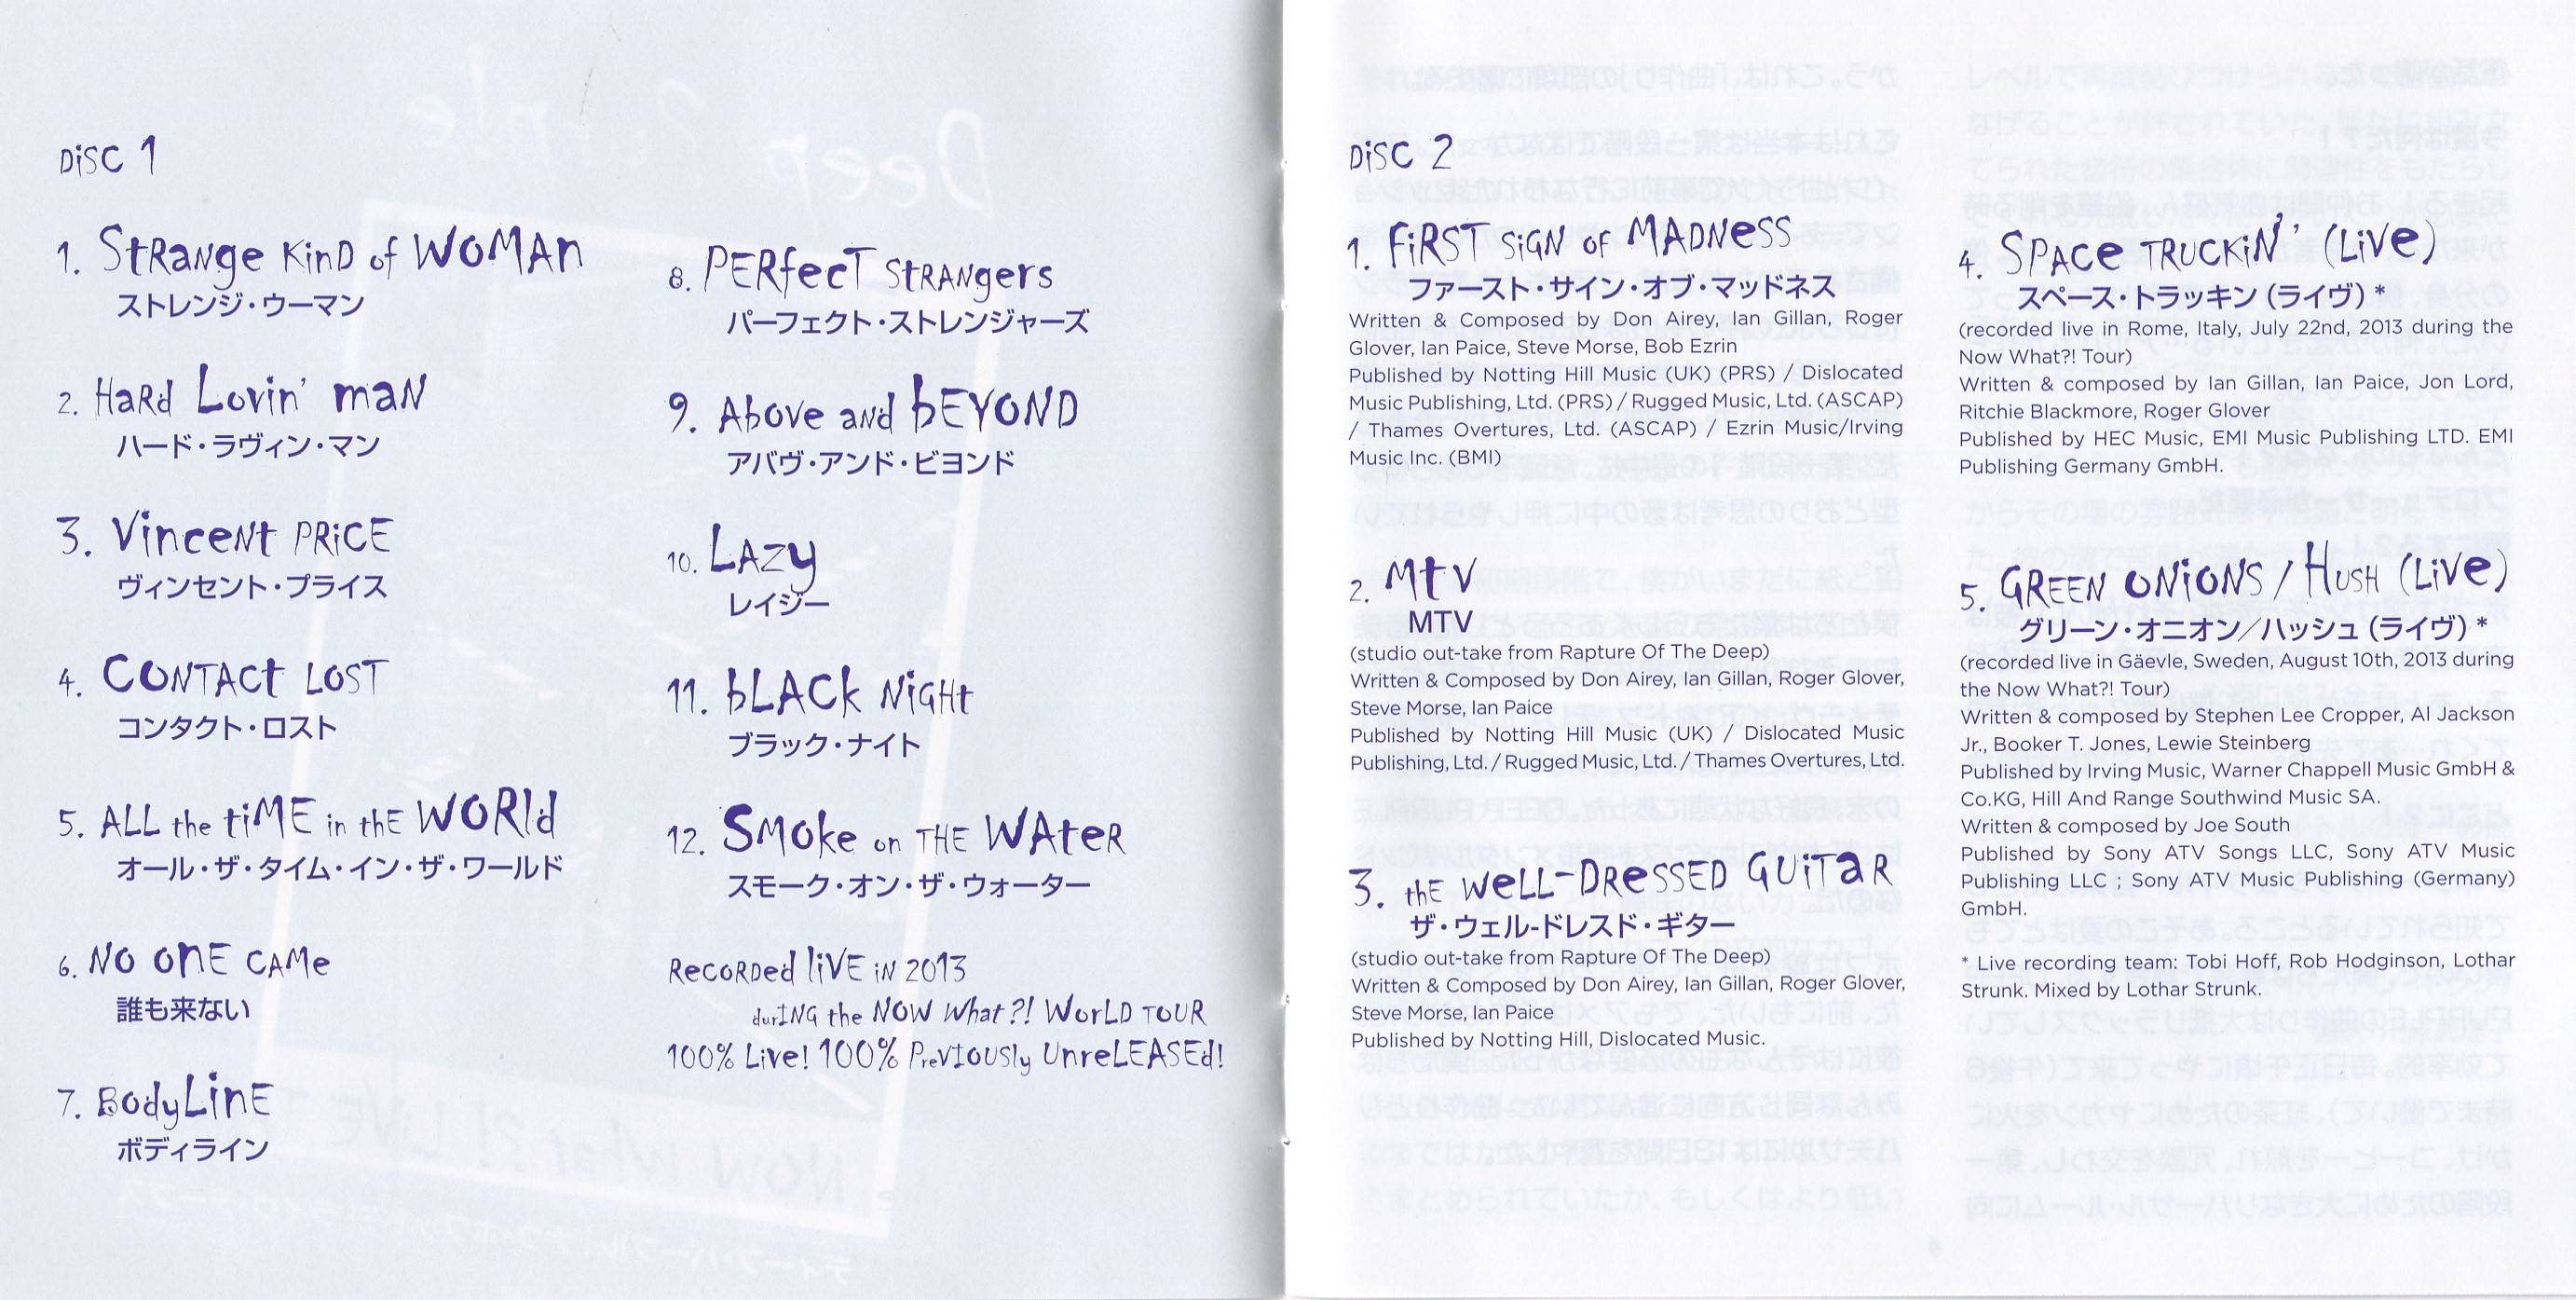 DiSC 1
1. Strange Kind of Woman
ストレンジ・ウーマン
2. Hard Lovin' man
ハード・ラヴィン・マン
3. Vincent Price
ヴィンセント・プライス
4. Contact Lost
コンタクト・ロスト
5. All the time in the World
オール・ザ・タイム・イン・ザ・ワールド
6. No one came
誰も来ない
7. BodyLine
ボディライン
8. Perfect Strangers
パーフェクト・ストレンジャーズ
9. Above and Beyond
アバヴ・アンド・ビヨンド
10. Lazy
レイジー
11. Black Night
ブラック・ナイト
12. Smoke on the Water
スモーク・オン・ザ・ウォーター
Recorded live in 2013
during the Now What?! World Tour
100% Live! 100% Previously Unreleased!
DiSC 2
1. First Sign of Madness
ファースト・サイン・オブ・マッドネス
Written & Composed by Don Airey, Ian Gillan, Roger
Glover, Ian Paice, Steve Morse, Bob Ezrin
Published by Notting Hill Music (UK) (PRS) / Dislocated
Music Publishing, Ltd. (PRS) / Rugged Music, Ltd. (ASCAP)
/ Thames Overtures, Ltd. (ASCAP) / Ezrin Music/Irving
Music Inc. (BMI)
2. MTV
MTV
(studio out-take from Rapture Of The Deep)
Written & Composed by Don Airey, Ian Gillan, Roger Glover,
Steve Morse, Ian Paice
Published by Notting Hill Music (UK) / Dislocated Music
Publishing, Ltd. / Rugged Music, Ltd. / Thames Overtures, Ltd.
3. the Well-Dressed Guitar
ザ・ウェル-ドレスド・ギター
(studio out-take from Rapture Of The Deep)
Written & Composed by Don Airey, Ian Gillan, Roger Glover,
Steve Morse, Ian Paice
Published by Notting Hill, Dislocated Music.
4. Space Truckin' (Live)
スペース・トラッキン (ライヴ) *
(recorded live in Rome, Italy, July 22nd, 2013 during the
Now What?! Tour)
Written & composed by Ian Gillan, Ian Paice, Jon Lord,
Ritchie Blackmore, Roger Glover
Published by HEC Music, EMI Music Publishing LTD. EMI
Publishing Germany GmbH.
5. Green Onions / Hush (Live)
グリーン・オニオン／ハッシュ (ライヴ) *
(recorded live in Gäevle, Sweden, August 10th, 2013 during
the Now What?! Tour)
Written & composed by Stephen Lee Cropper, Al Jackson
Jr., Booker T. Jones, Lewie Steinberg
Published by Irving Music, Warner Chappell Music GmbH &
Co.KG, Hill And Range Southwind Music SA.
Written & composed by Joe South
Published by Sony ATV Songs LLC, Sony ATV Music
Publishing LLC ; Sony ATV Music Publishing (Germany)
GmbH.
* Live recording team: Tobi Hoff, Rob Hodginson, Lothar
Strunk. Mixed by Lothar Strunk.